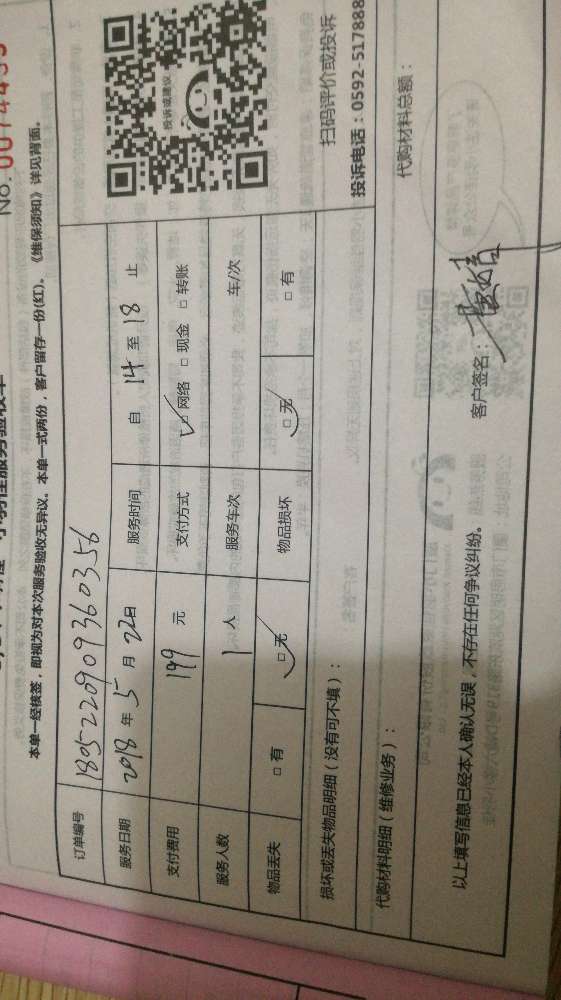 No. 0074455
本单一经核签，即视为对本次服务验收无异议。本单一式两份，客户留存一份(红)。《维保须知》详见背面。
订单编号 1805220909360356
服务日期 2018 年 5 月 22日 服务时间 自 14 至 18 止
支付费用 199 元 支付方式 □ 网络 □ 现金 □ 转账
服务人数 1 人 服务车次 车/次
物品丢失 □ 有 □ 无 物品损坏 □ 无 □ 有
投诉或建议
扫码评价或投诉
投诉电话：0592-517888
损坏或丢失物品明细（没有可不填）：
代购材料明细（维修业务）： 代购材料总额：
以上填写信息已经本人确认无误，不存在任何争议纠纷。 客户签名：